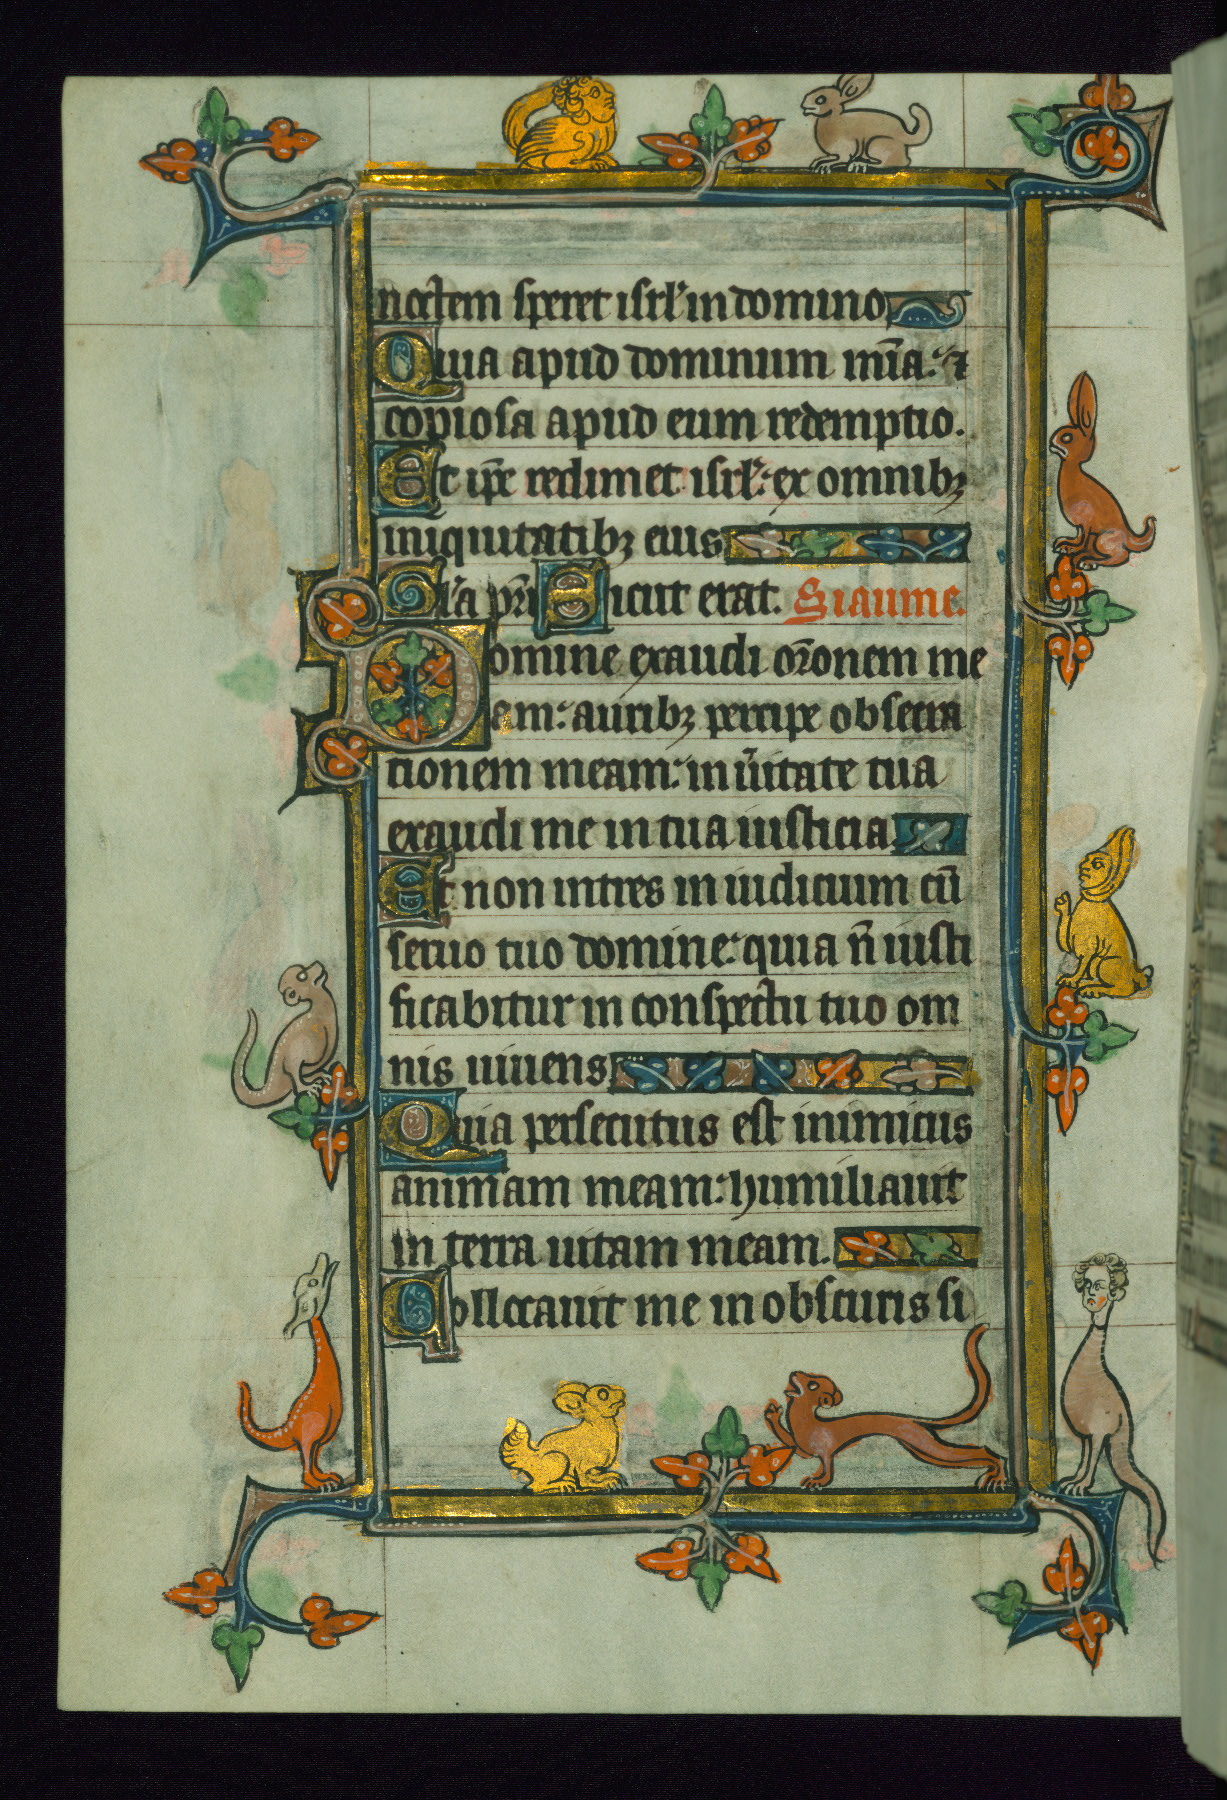 noctem speret isrl' in domino
Quia apud dominum mia: et
copiosa apud eum redemptio.
Et ipe redimet isrl': ex omnibꝫ
iniquitatibꝫ eius
Gl'a pri Sicut erat. Siaume.
Domine exaudi oronem me
am: auribꝫ percipe obsecra
tionem meam: in uitate tua
exaudi me in tua iusticia
Et non intres in iudicium cū
seruo tuo domine: quia n̄ iusti
ficabitur in conspectu tuo om
nis uiuens
Quia persecutus est inimicus
animam meam: humiliauit
in terra uitam meam.
Collocauit me in obscuris si